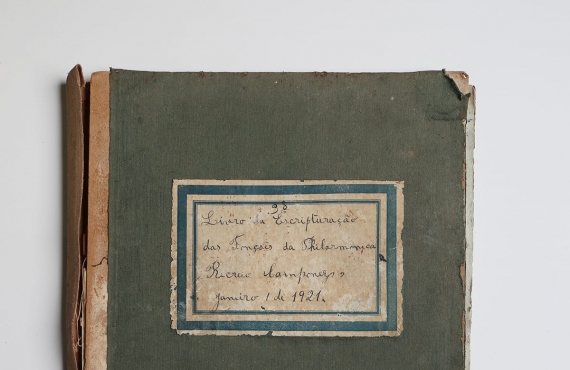 Livro da Escripturação
das Funçois da Philarmonica
Recreio Camponezs
janeiro 1 de 1921.